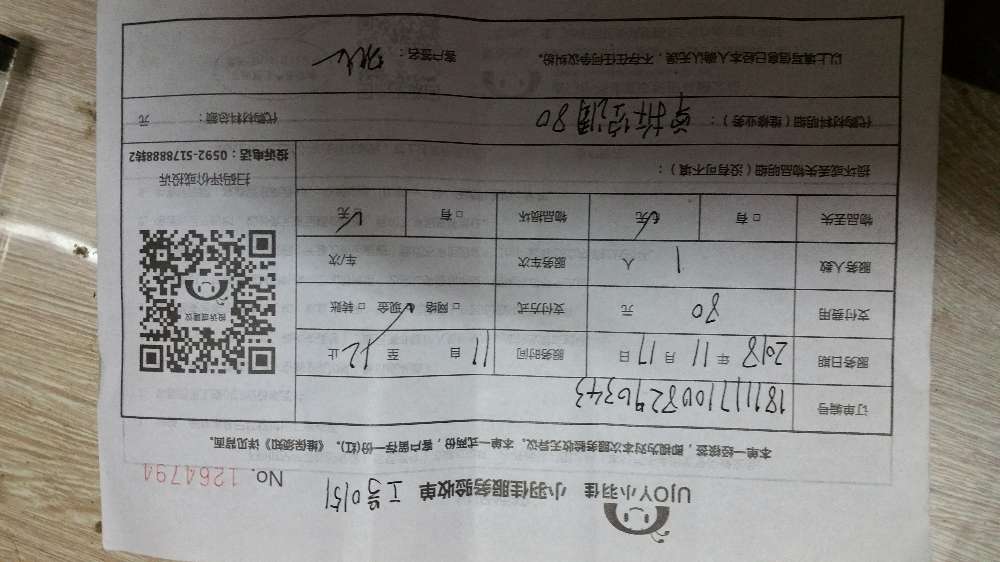 UJOY小羽佳 小羽佳服务验收单 工号0151
No. 1264794
本单一经核签，即视为对本次服务验收无异议。本单一式两份，客户留存一份(红)。《维保须知》详见背面。
订单编号 1811171008296343
服务日期 2018年11月17日 服务时间 11自 至12止
支付费用 80元 支付方式 □网络 ☑现金 □转账
服务人数 1人 服务车次 车/次
物品丢失 □有 ☑无 物品损坏 □有 ☑无
损坏或丢失物品明细（没有可不填）：
投诉或建议
扫码评价或投诉
投诉电话：0592-5178888转2
代购材料明细（维修业务）： 单拆空调80 代购材料总额： 元
以上填写信息已经本人确认无误，不存在任何争议纠纷。 客户签名：